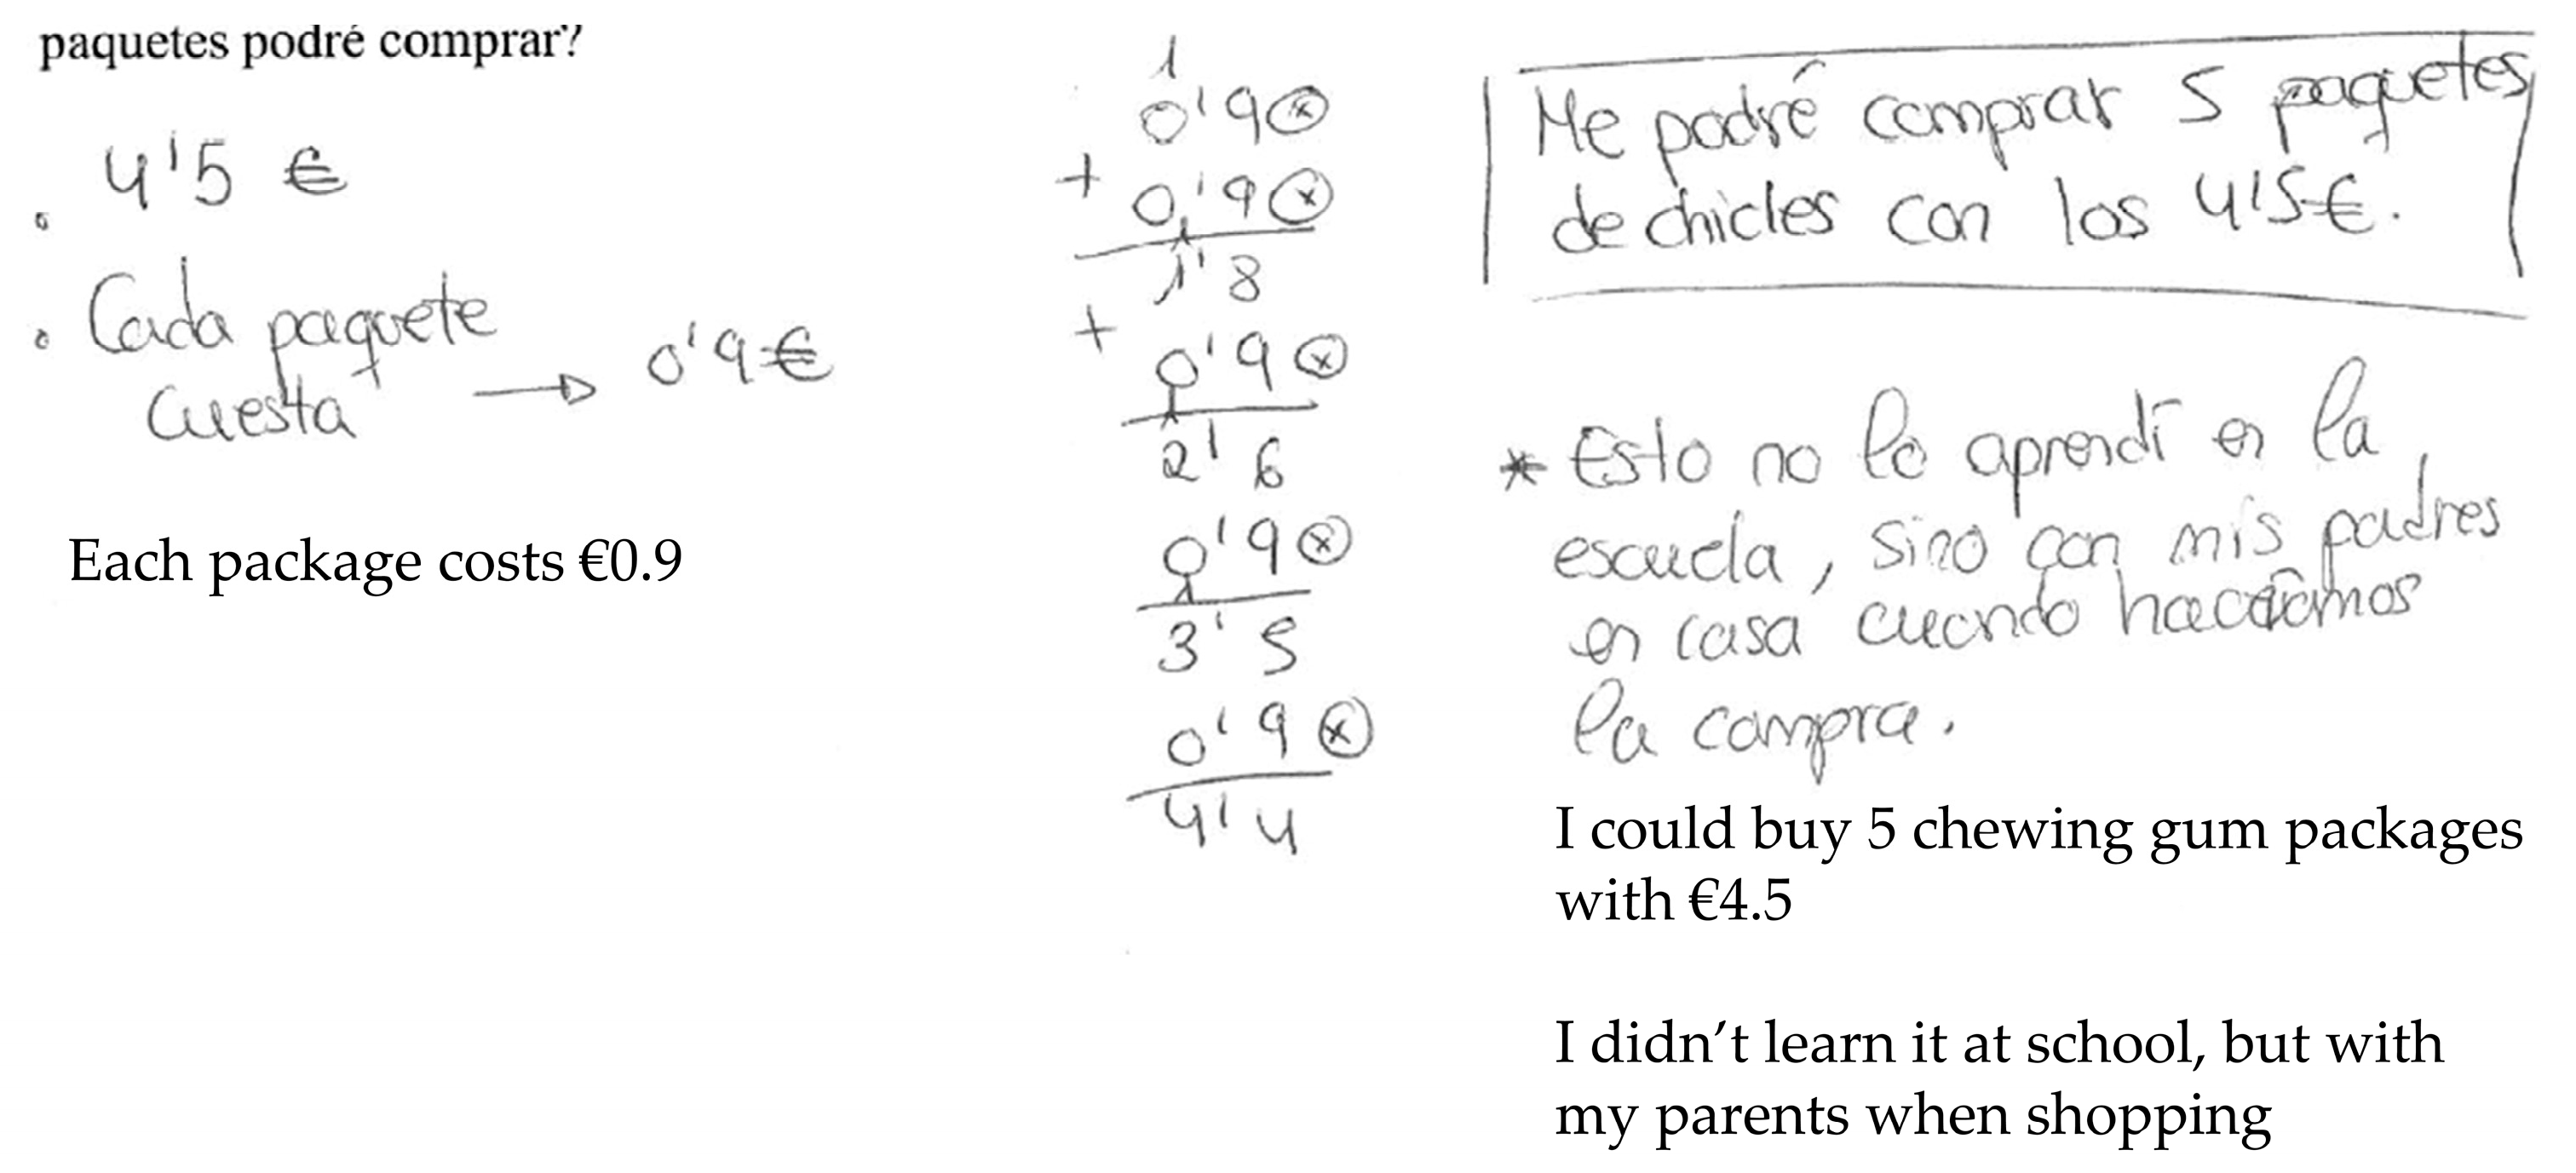 paquetes podré comprar?
4'5 €
Cada paquete
cuesta → 0'9€
Each package costs €0.9
1
0'9 ⓧ
+ 0'9 ⓧ
1'8
+ 0'9 ⓧ
2'6
0'9 ⓧ
3'5
0'9 ⓧ
4'4
Me podré comprar 5 paquetes
de chicles con los 4'5€.
* Esto no lo aprendí en la
escuela, sino con mis padres
en casa cuando hacíamos
la compra.
I could buy 5 chewing gum packages
with €4.5
I didn't learn it at school, but with
my parents when shopping